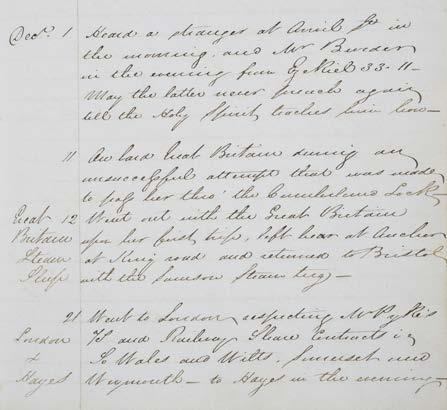 Decr. 1 Heard a stranger at Arvil St in
the morning and Mr Brewer
in the evening from Ezekiel 33-11-
May the latter never preach again
till the Holy Spirit teaches him how-
11 On board Great Britain during an
unsuccessful attempt that was made
to pass her thro' the Cumberland Lock-
Great 12 Went out with the Great Britain
Britain upon her first trip, left hear at Anchor
Steam at King road and returned to Bristol
Ship with the Samson Steam tug-
21 Went to London respecting Mr
London and Railway Share Contracts in
& So Wales and Wilts, Somerset and
Hayes Weymouth - to Hayes in the evening-